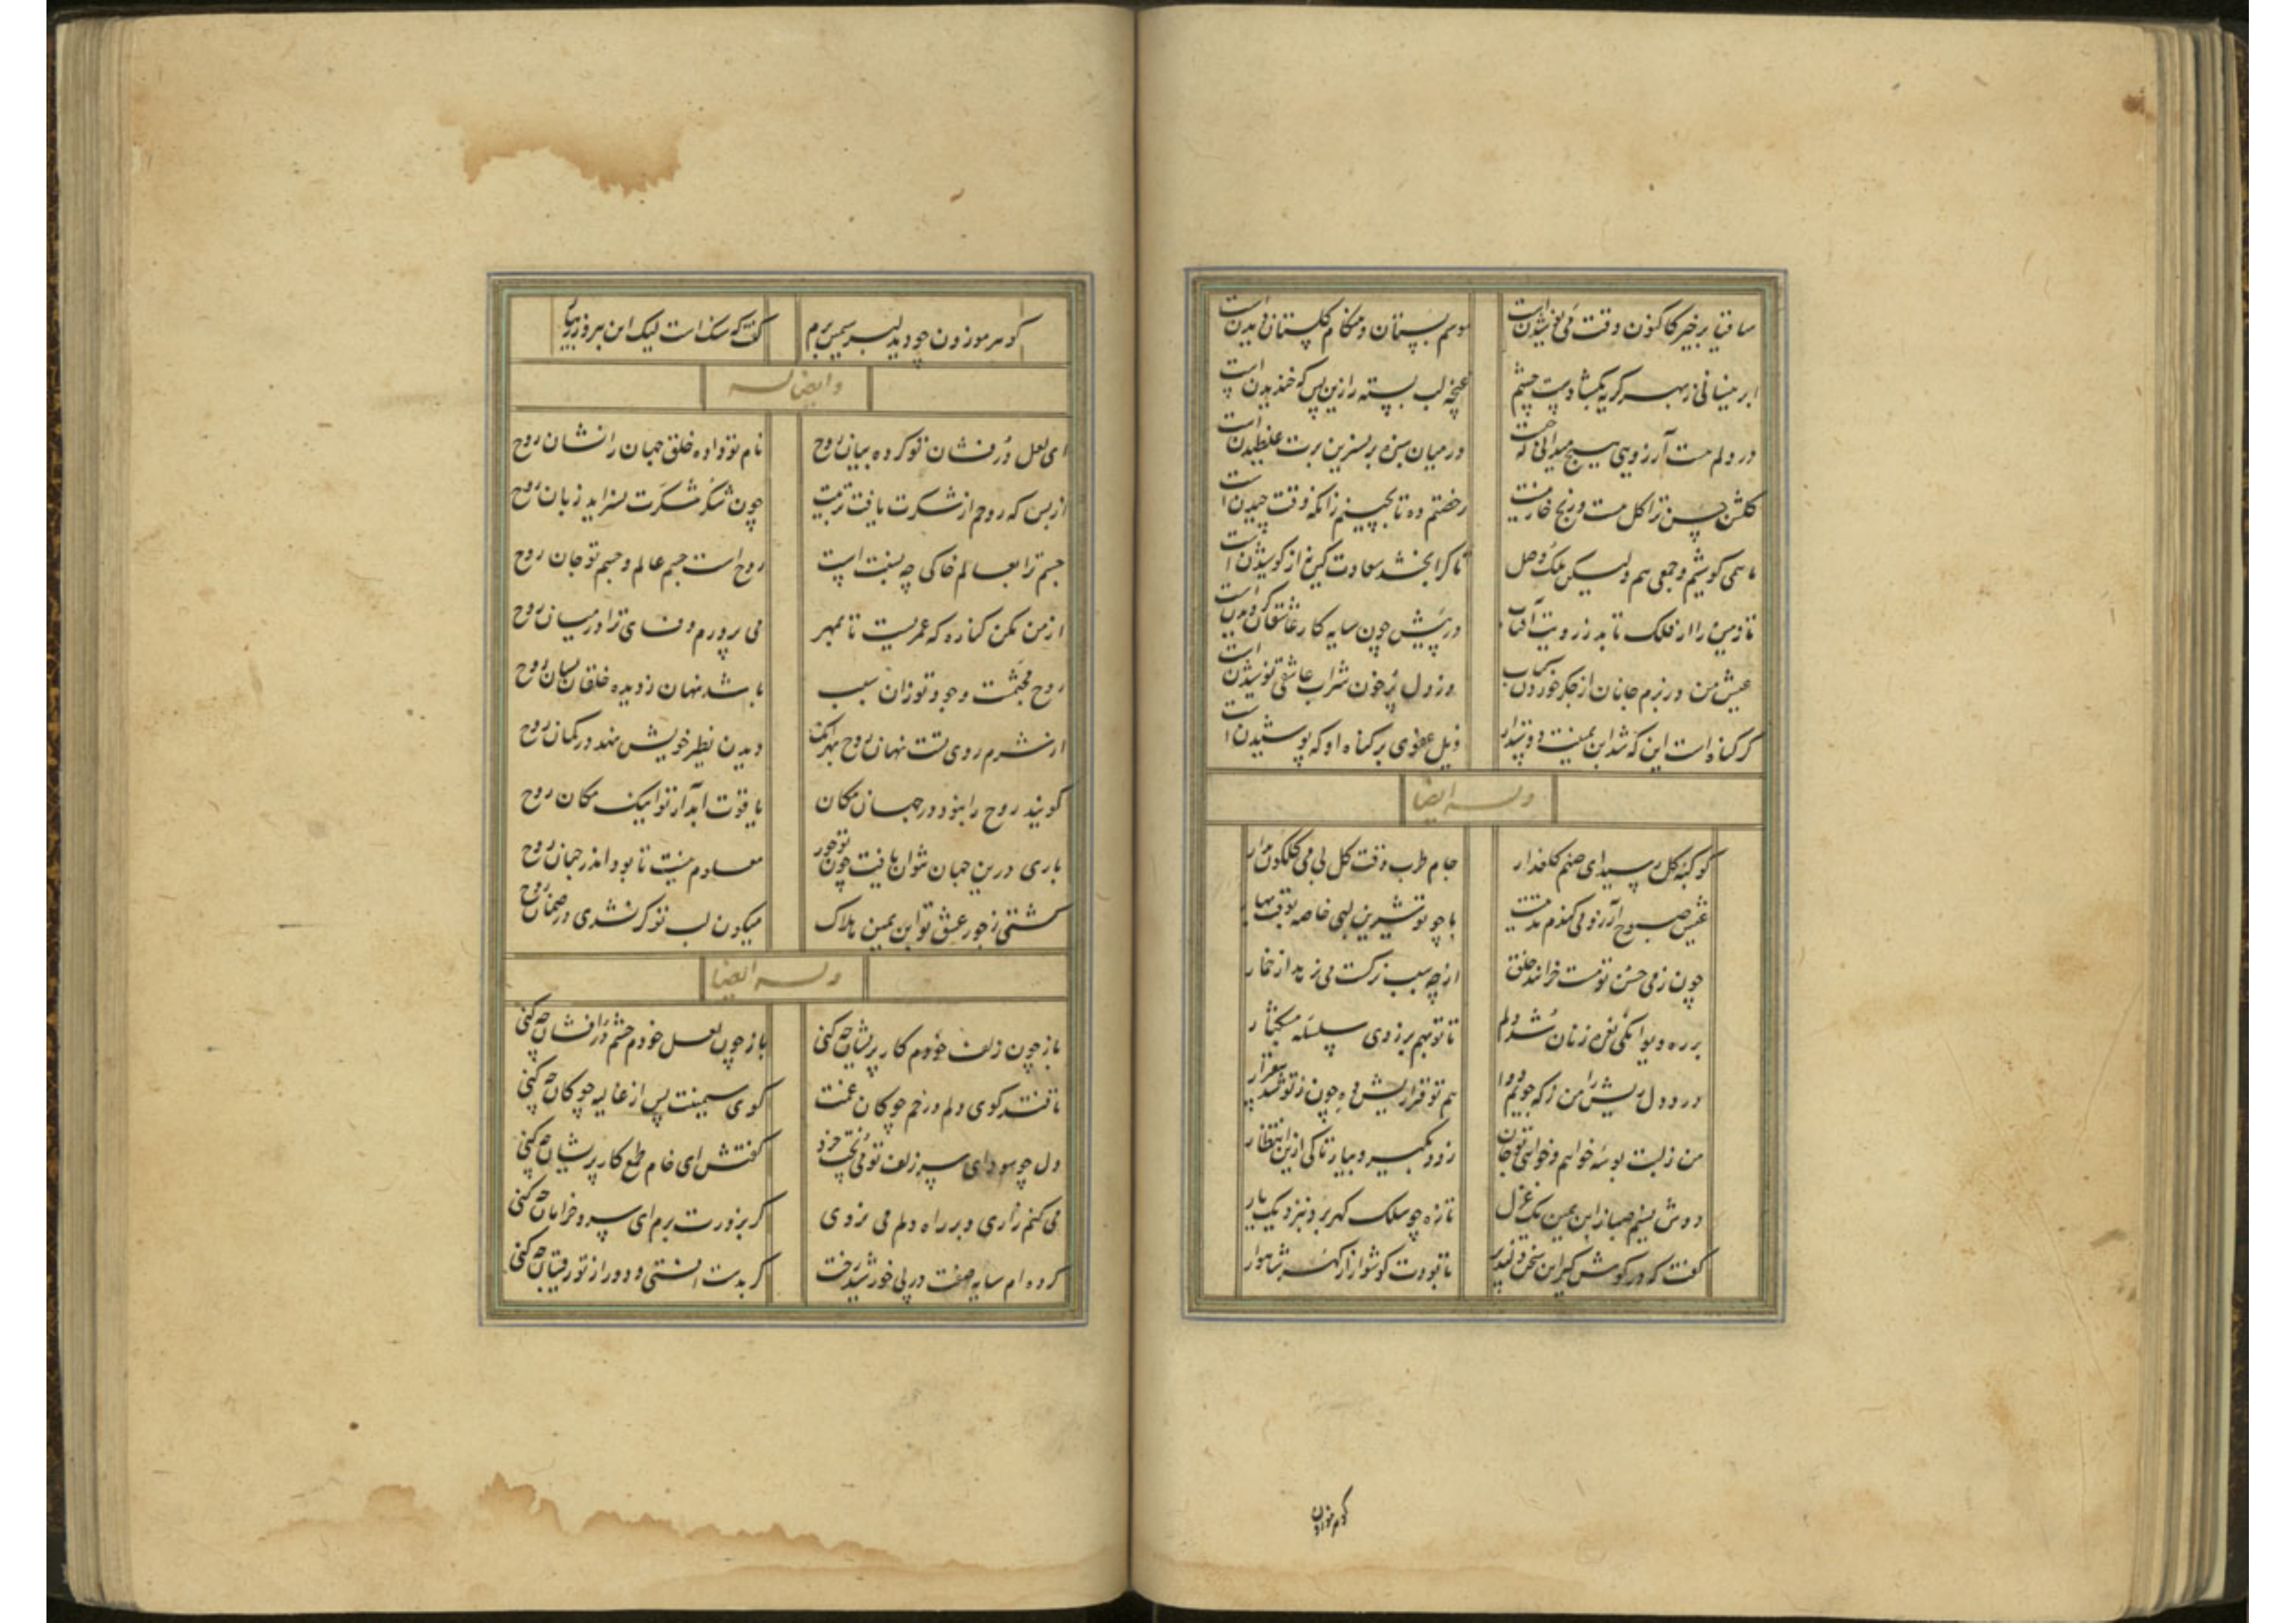 ساقیا برخیز کاکنون وقت می نوشیدن است
موسم بستان و هنگام گلستان دیدن است
ابر نیسانی ز بهر گریه بگشادست چشم
غنچه لب بسته را زین پس گه خندیدن است
در دلم هست آرزویی هیچ میدانی که چیست
در میان سبزه بر نسرین برت غلطیدن است
گلشن حسن ترا گل هست و رنج خار نیست
رخصتم ده تا بچینم زانکه وقت چیدن است
ما همی کوشیم و جمعی هم ولیکن ملک وصل
تا کرا بخشد سعادت کین نه از کوشیدن است
تا زمین را از فلک تابد ز رویت آفتاب
در پیش چون سایه کار عاشقان گردیدن است
عیش من در بزم جانان از جگر خوردن کباب
وز دل پر خون شراب عاشقی نوشیدن است
گر گناه است این که شد ابن یمینت دوستدار
ذیل عفوی بر گناه او که پوشیدن است
وله ایضا
کوکبه گل رسید ای صنم گلعذار
جام طرب وقت گل بی می گلگون مدار
عیش صبوح آرزو می کندم مدتیست
با چو تو شیرین لبی خاصه بوقت بهار
چون ز می حسن تو مست خرابند خلق
از چه سبب نرگست می نرهد از خمار
بر ره دیوانگی نعره زنان شد دلم
تا تو بهم بر زدی سلسله مشکبار
درد دل ریش را من ز که جویم دوا
هم تو قراریش ده چون ز تو شد بیقرار
من ز لبت بوسه خواهم و خواهی تو جان
زود بگیر و بیار تا کی ازین انتظار
دوش نسیم صبا ز ابن یمین یک غزل
تازه چو سلک گهر برد بنزدیک یار
گفت که در گوش گیر این سخن دلپذیر
تا بودت گوشوار از گهر شاهوار
گوهر موزون چو دید لب سیمین برم
گفت که سنک است لیک این
وایضا له
ای لعل درفشان تو کرده بیان روح
نام تو داده خلق جهان را نشان روح
از بس که روحم از شکرت یافت تربیت
چون شکر شکرت نسراید زبان روح
جسم ترا بعالم خاکی چه نسبت است
روح است جسم عالم و جسم تو جان روح
از من مکن کناره که عمریست تا بمهر
می پرورم وفای ترا در میان روح
روح مجسمست وجود تو زان سبب
باشد نهان ز دیده خلقان بسان روح
از شرم روی تست نهان روح بهر آنک
دیدن نظیر خویش نهد در گمان روح
گویند روح را نبود در جهان مکان
یاقوت آبدار تو اینک مکان روح
باری درین جهان نتوان یافت چون تو حور
معلوم نیست تا بود اندر جهان روح
گشتی ز جور عشق تو ابن یمین هلاک
میگون لب تو گر نشدی در ضمان روح
وله ایضا
باز چون زلف خودم کار پریشان چه کنی
باز چون لعل خودم چشم درافشان چه کنی
تا فتد گوی دلم در خم چوگان غمت
گوی سیمینت پس از غالیه چوگان چه کنی
دل چو سودای سر زلف تو می پخت خرد
گفتش ای خام طمع کار پریشان چه کنی
می کنم زاری و بر راه دلم می نروی
گر بزورت برم ای سرو خرامان چه کنی
کرده ام سایه صفت در پی خورشید رخت
گر بدست افتی و دور از تو رقیبان چه کنی